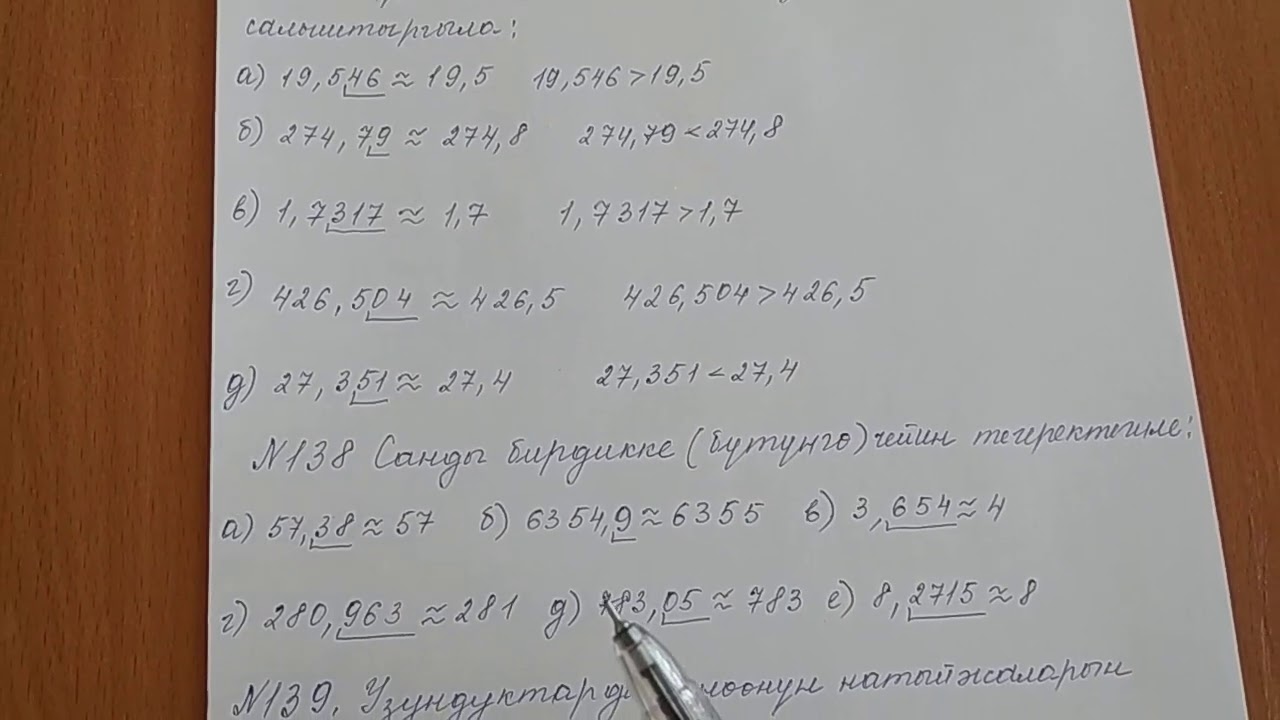 салыштыргыла:
а) 19,546 ≈ 19,5 19,546 > 19,5
б) 274,79 ≈ 274,8 274,79 < 274,8
в) 1,7317 ≈ 1,7 1,7317 > 1,7
г) 426,504 ≈ 426,5 426,504 > 426,5
д) 27,351 ≈ 27,4 27,351 < 27,4
N138 Санды бирдикке (бүтүнгө) чейин тегеректегиле:
а) 57,38 ≈ 57 б) 6354,9 ≈ 6355 в) 3,654 ≈ 4
г) 280,963 ≈ 281 д) 783,05 ≈ 783 е) 8,2715 ≈ 8
N139. натыйжаларын